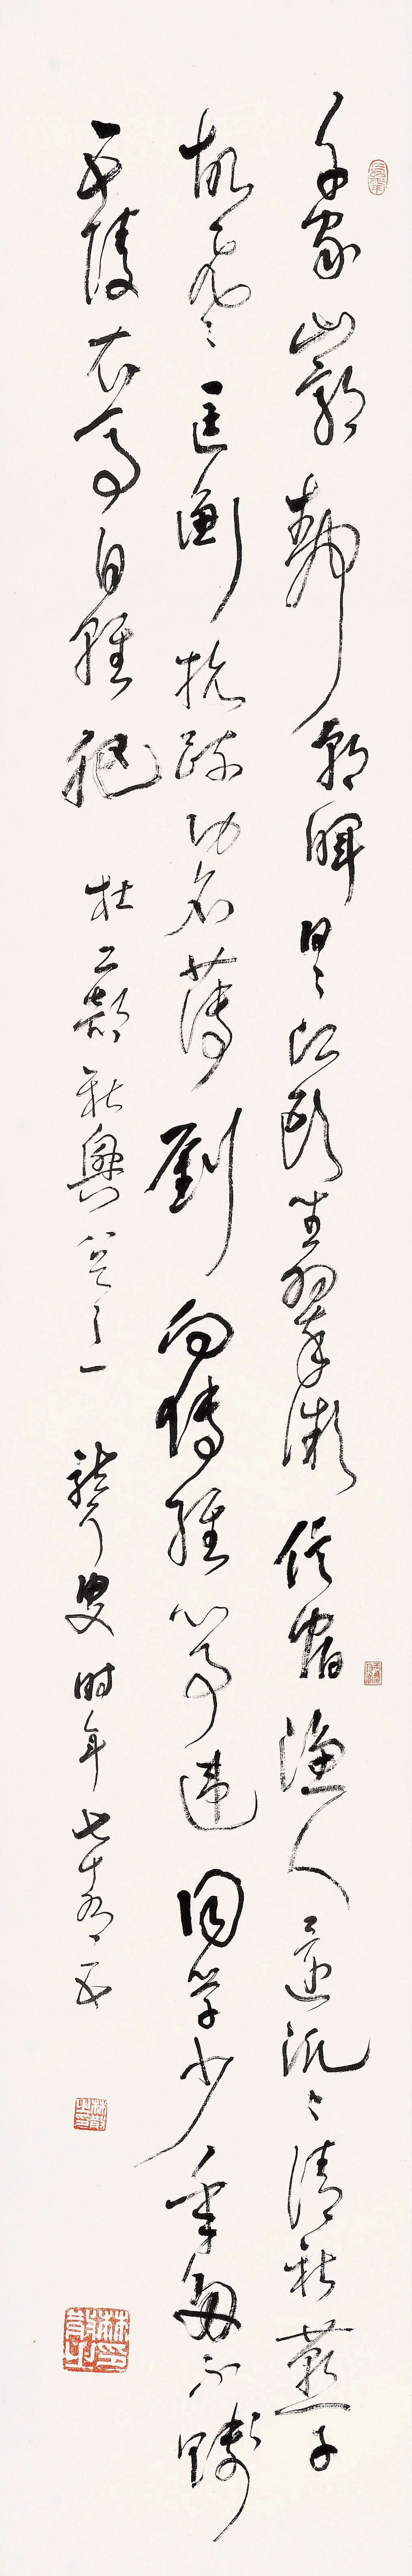 千家山郭静朝晖日日江頭坐翠微信宿漁人還汎汎清秋燕子
故飛飛匡衡抗疏功名薄劉向傳經心事違同学少年多不賤
五陵衣馬自輕肥 杜工部秋興八首之一 聾叟时年七十有五
林散之印